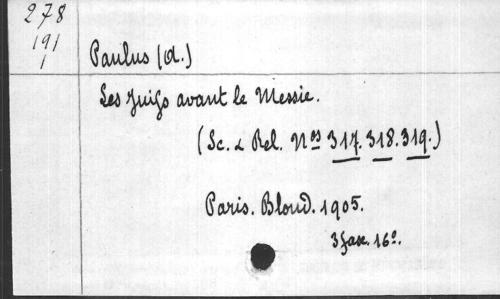 278
191
1
Paulus (A.)
Les Juifs avant le Messie.
(Sc. & Rel. Nos 317. 318. 319.)
Paris. Bloud. 1905.
3 fasc. 16o.